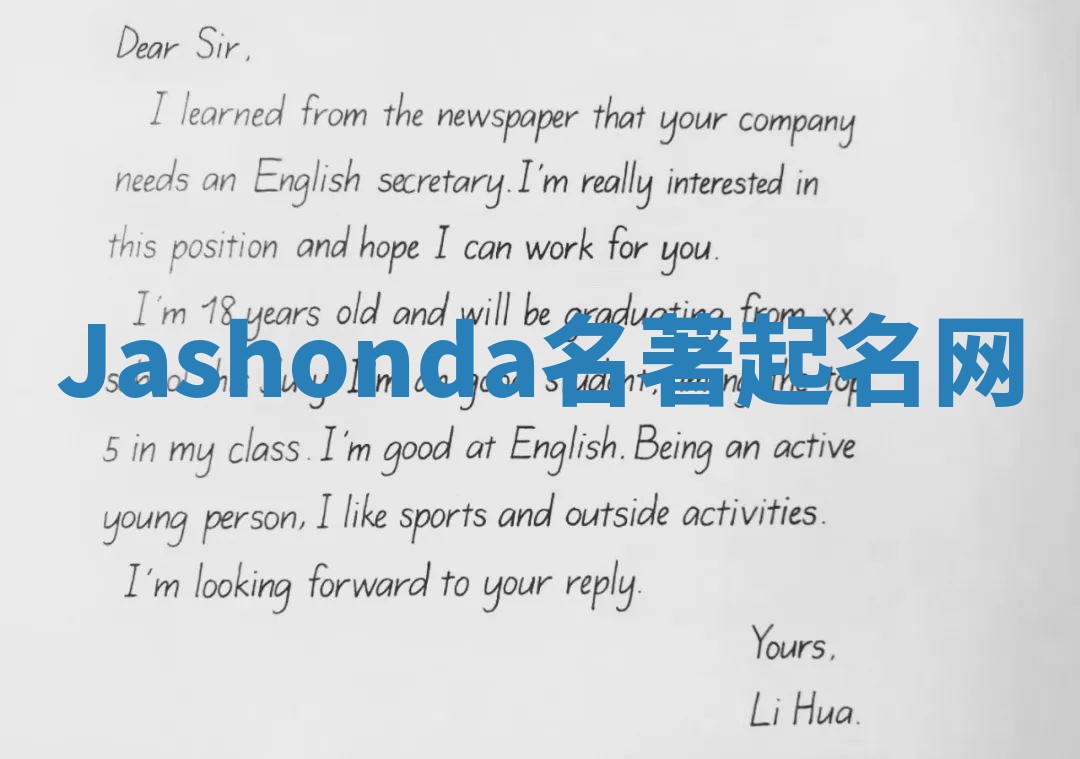 Dear Sir,
I learned from the newspaper that your company
needs an English secretary. I'm really interested in
this position and hope I can work for you.
I'm 18 years old and will be graduating from xx
Jashonda名著起名网
I'm student, the top
5 in my class. I'm good at English. Being an active
young person, I like sports and outside activities.
I'm looking forward to your reply.
Yours,
Li Hua.